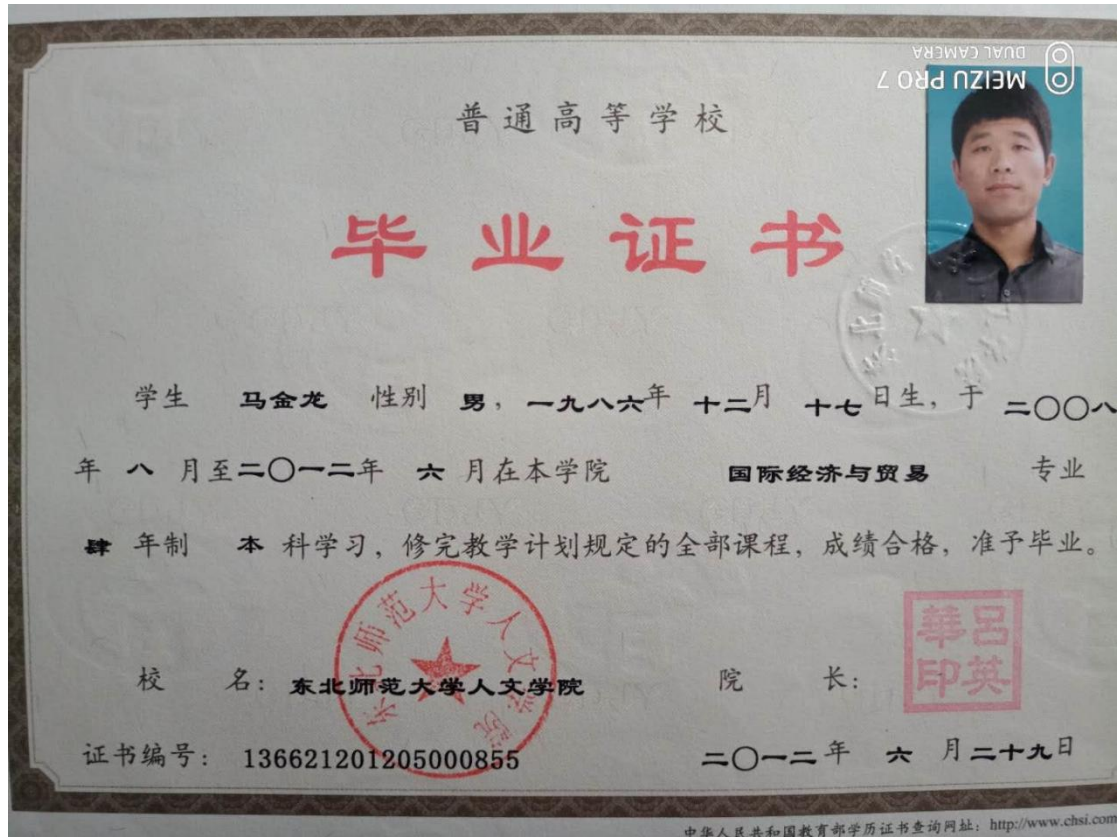 MEIZU PRO 7
DUAL CAMERA
普通高等学校
毕业证书
学生 马金龙 性别 男，一九八六年 十二月 十七日生，于 二〇〇八
年 八 月至二〇一二年 六 月在本学院 国际经济与贸易 专业
肆 年制 本 科学习，修完教学计划规定的全部课程，成绩合格，准予毕业。
东北师范大学人文学院
呂英華印
校 名：东北师范大学人文学院 院 长：
证书编号：136621201205000855 二〇一二年 六 月二十九日
中华人民共和国教育部学历证书查询网址：http://www.chsi.com